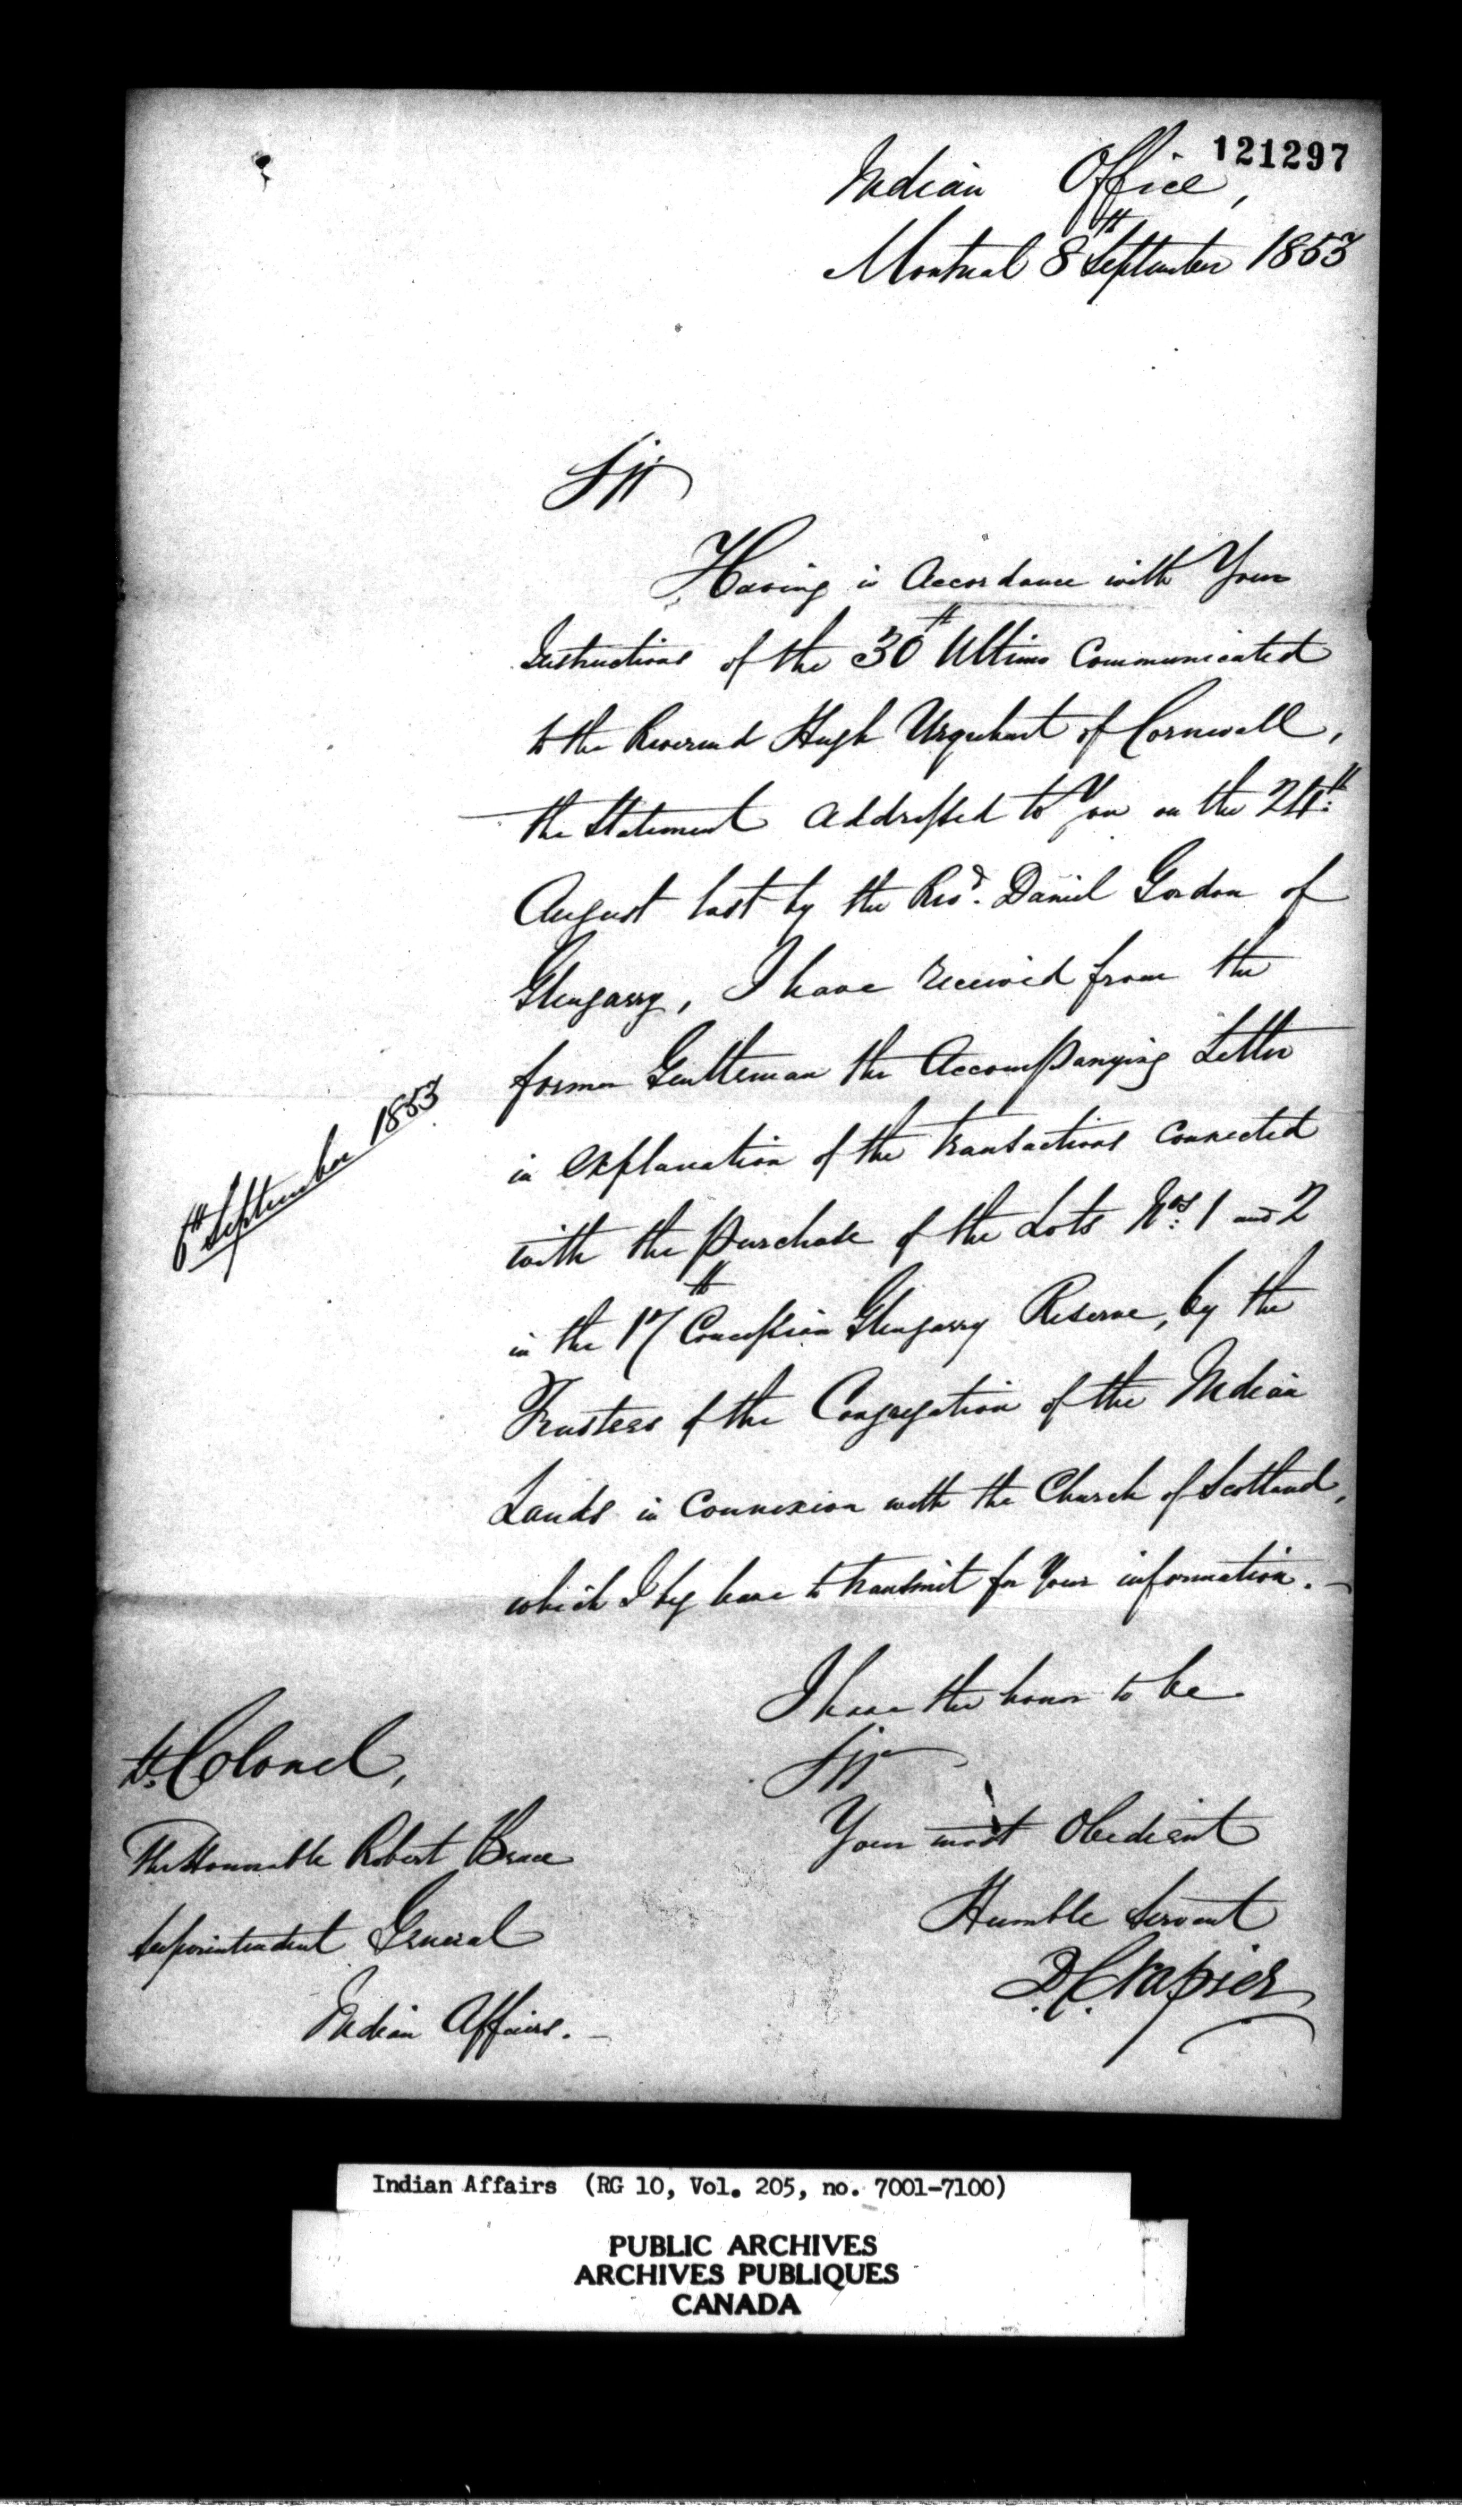 121297
Indian Office,
Montreal 8th September 1853
Sir
Having in Accordance with Your
Instructions of the 30th Ultimo Communicated
to the Reverend Hugh Urquhart of Cornwall,
the Statement addressed to You on the 24th
August last by the Revd. Daniel Gordon of
Glengarry, I have received from the
former Gentleman the Accompanying Letter
6th September 1853
in explanation of the transactions connected
with the purchase of the Lots Nos. 1 and 2
in the 17th Concession Glengarry Reserve, by the
Trustees of the Congregation of the Indian
Lands in Connexion with the Church of Scotland,
which I beg leave to transmit for Your information.
I have the honor to be
Sir
Your most Obedient
Humble Servant
D.C. Napier
Lt. Colonel,
The Honorable Robert Bruce
Superintendent General
Indian Affairs.
Indian Affairs (RG 10, Vol. 205, no. 7001-7100)
PUBLIC ARCHIVES
ARCHIVES PUBLIQUES
CANADA